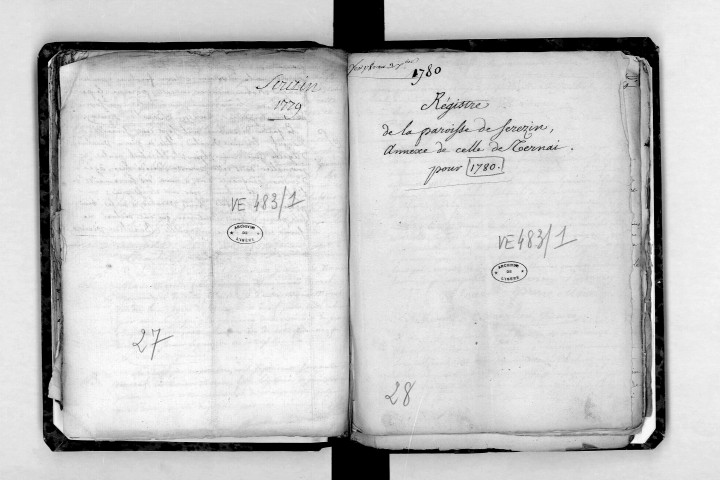 Serezin
1779
VE 483/1
ARCHIVES
DE
L'ISERE
27
1780
Régistre
de la paroisse de serezin,
Annexe de celle de Ternai.
pour 1780.
VE 483/1
ARCHIVES
DE
L'ISERE
28